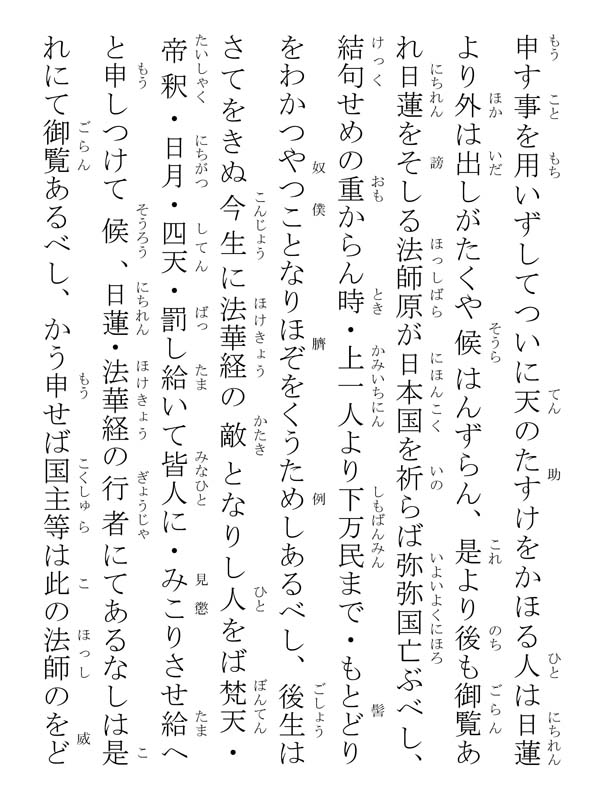 申す事を用いずしてついに天のたすけをかほる人は日蓮
より外は出しがたくや候はんずらん、是より後も御覧あ
れ日蓮をそしる法師原が日本国を祈らば弥弥国亡ぶべし、
結句せめの重からん時・上一人より下万民まで・もとどり
をわかつやつことなりほぞをくうためしあるべし、後生は
さてをきぬ今生に法華経の敵となりし人をば梵天・
帝釈・日月・四天・罰し給いて皆人に・みこりさせ給へ
と申しつけて候、日蓮・法華経の行者にてあるなしは是
れにて御覧あるべし、かう申せば国主等は此の法師のをど